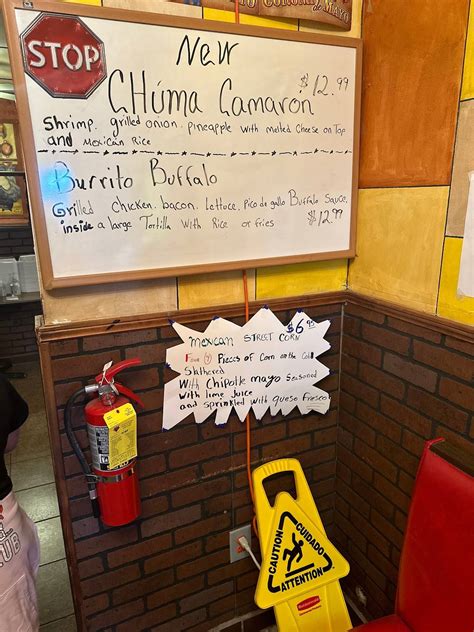 STOP
New
CHúma Camarón $12.99
Shrimp, grilled onion, pineapple with melted Cheese on Top
and Mexican Rice
Burrito Buffalo
Grilled Chicken, bacon, Lettuce, Pico de gallo Buffalo Sauce,
inside a large Tortilla With Rice or fries $12.99
Mexican Street Corn $6
Four Pieces of Corn on the Cob
Slathered
With Chipotle mayo Seasoned
With lime Juice
and sprinkled with queso Fresco
CAUTION
CUIDADO
ATTENTION
Rubbermaid